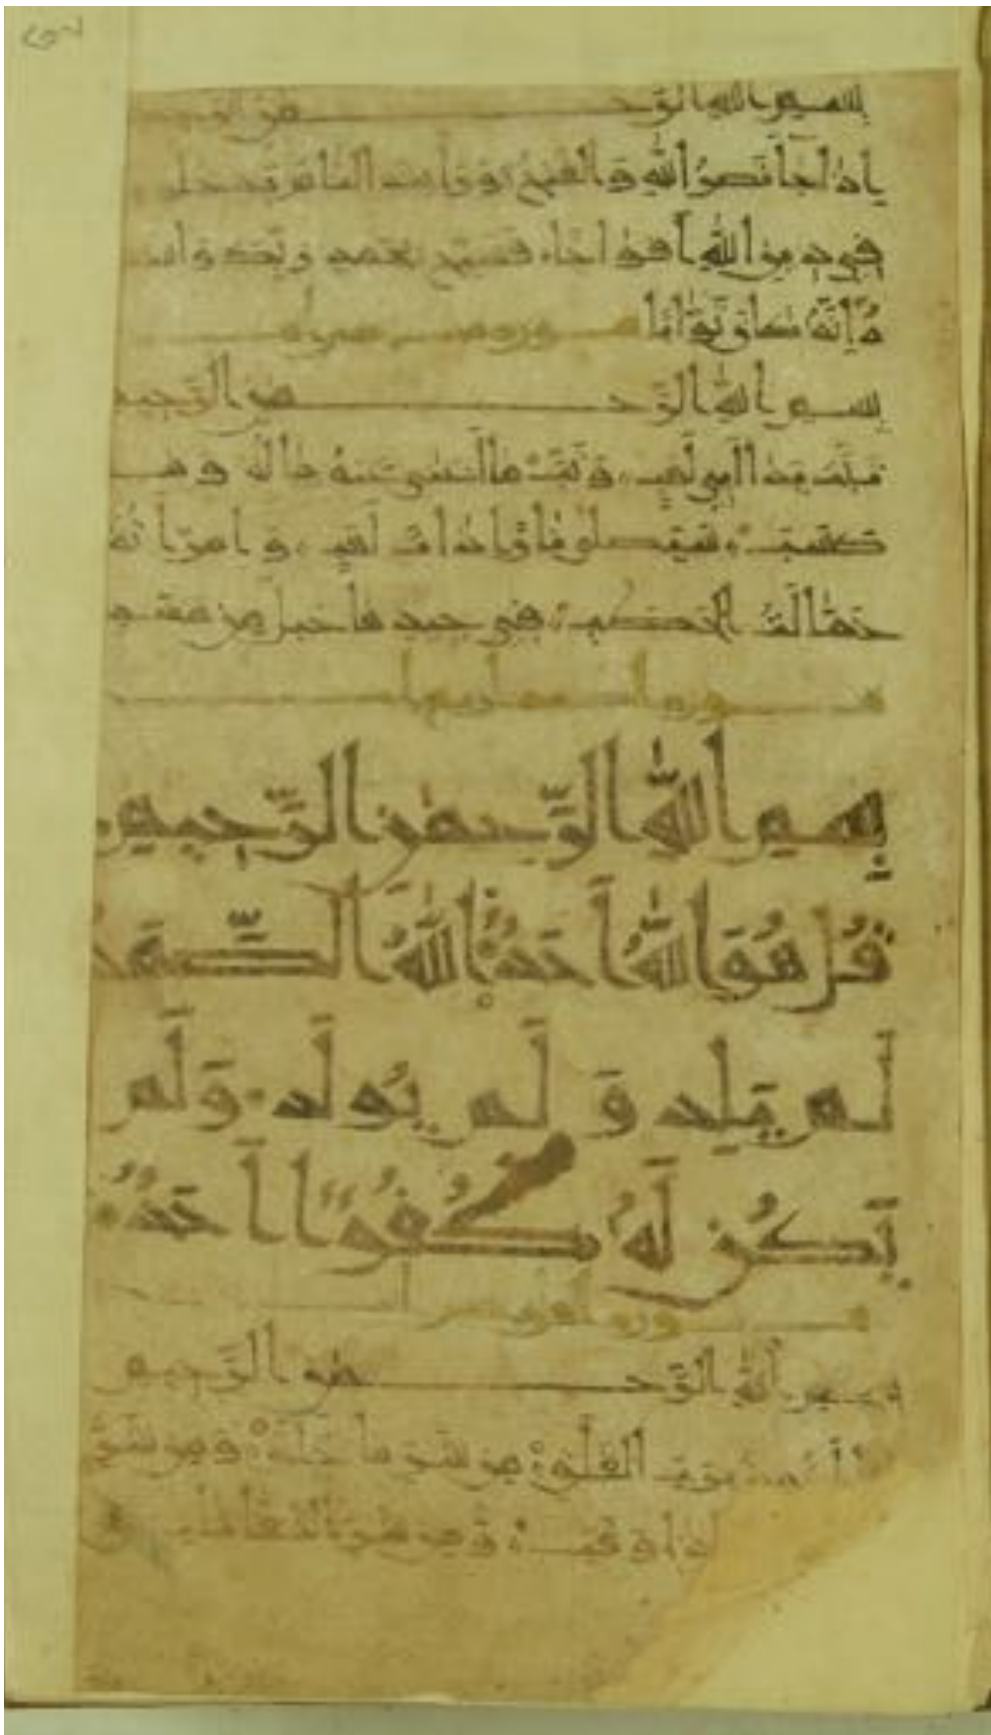 بسم الله الرحمن الرحيم
إذا جاء نصر الله والفتح ورأيت الناس يدخلو
في دين الله أفواجا فسبح بحمد ربك واست
ه إنه كان توابا سورة
بسم الله الرحمن الرحيم
تبت يدا أبي لهب وتب ما أغنى عنه ماله وما
كسب سيصلى نارا ذات لهب وامرأته
حمالة الحطب في جيدها حبل من مسد
سورة
بِسم اللهِ الرَّحمن الرَّحِيم
قُل هُوَ اللهُ أَحَدٌ اللهُ الصَّمَد
لَم يَلِد وَلَم يُولَد وَلَم
يَكُن لَهُ كُفُوًا أَحَدٌ
سورة
بسم الله الرحمن الرحيم
برب الفلق من شر ما خلق ومن شر
إذا وقب ومن شر النفاثات